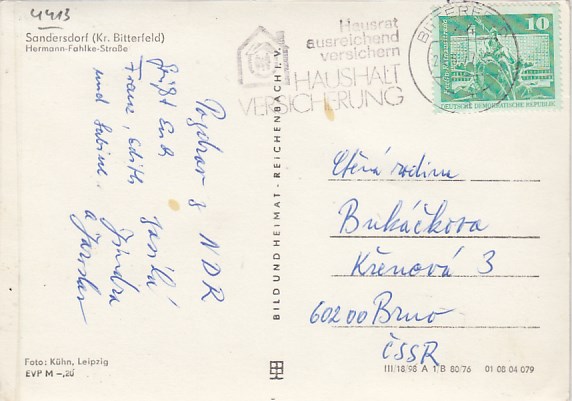 4413
Sandersdorf (Kr. Bitterfeld)
Hermann-Fahlke-Straße
Pozdrav z NDR
zasílá
Jindra
a Jaroslav
Grüßt Euch
Franz, Edith
und Sabine.
Foto: Kühn, Leipzig
EVP M –,20
BILD UND HEIMAT · REICHENBACH i. V.
Hausrat
ausreichend
versichern
HAUSHALT
VERSICHERUNG
10
DEUTSCHE DEMOKRATISCHE REPUBLIK
Ctěná rodina
Bukáčkova
Křenová 3
602 00 Brno
ČSSR
III/18/98 A 1/B 80/76 01 08 04 079